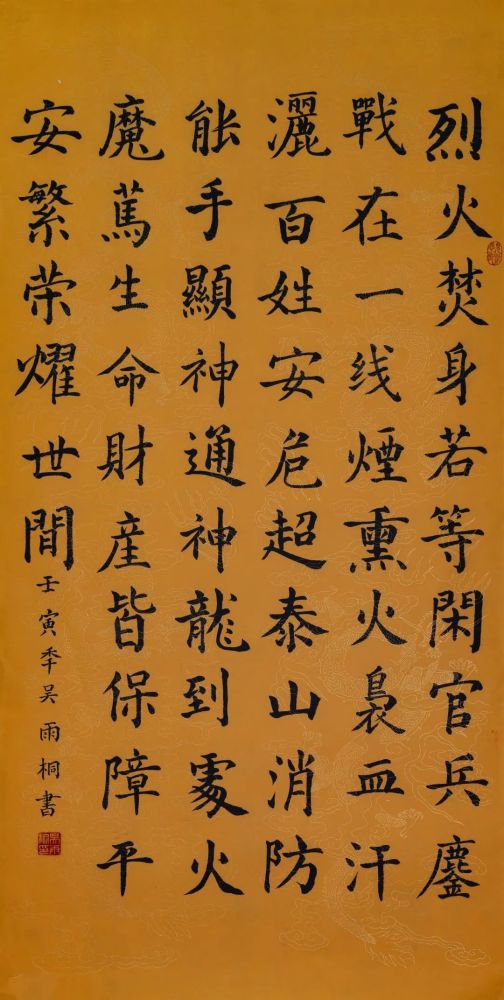 烈火焚身若等閑官兵鏖
戰在一线煙熏火裊血汗
灑百姓安危超泰山消防
能手顯神通神龍到處火
魔蔫生命財産皆保障平
安繁荣耀世間
壬寅秊吴雨桐書